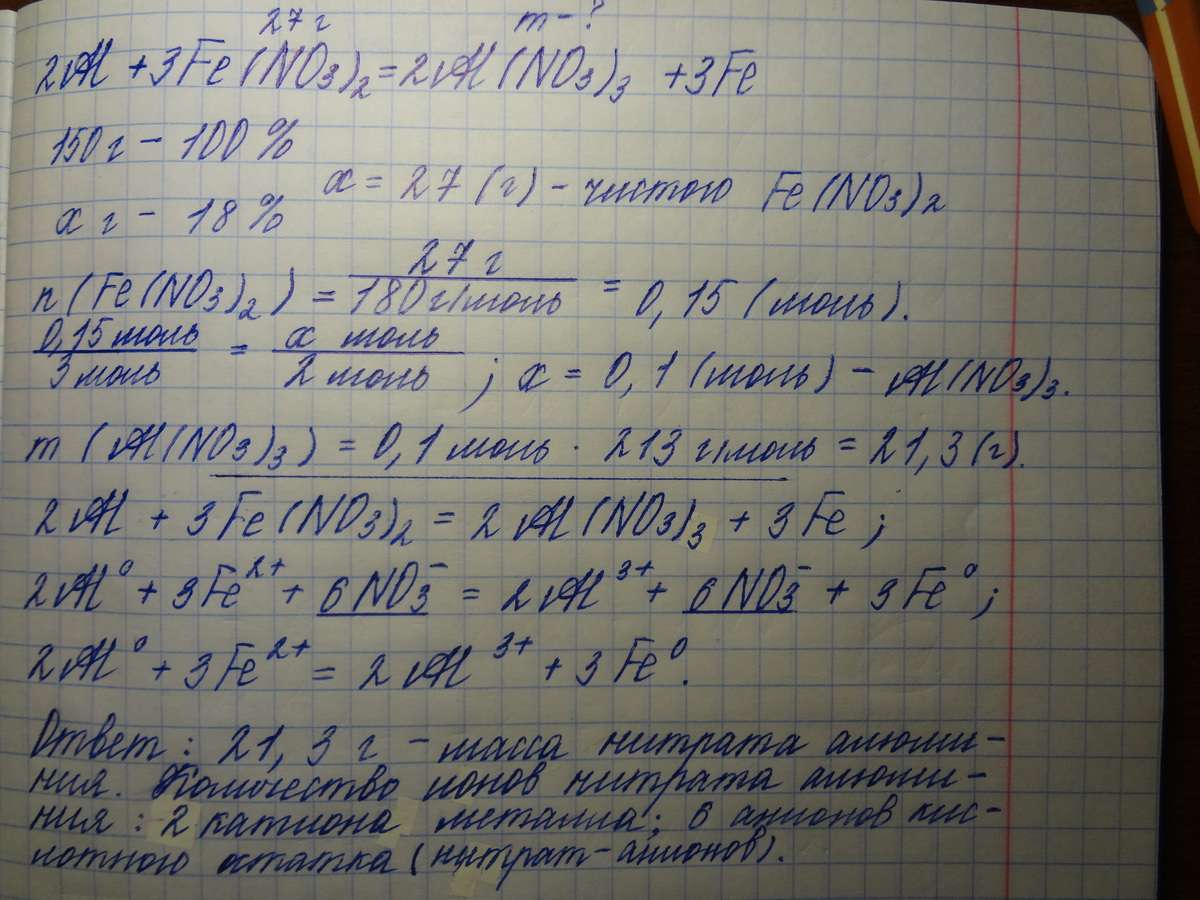 27 г m - ?
2Al + 3Fe(NO3)2 = 2Al(NO3)3 + 3Fe
150 г - 100 %
x = 27 (г) - чистого Fe(NO3)2
x г - 18 %
27 г
n(Fe(NO3)2) = 180 г/моль = 0,15 (моль).
0,15 моль = x моль
3 моль 2 моль ; x = 0,1 (моль) - Al(NO3)3.
m (Al(NO3)3) = 0,1 моль · 213 г/моль = 21,3 (г).
2Al + 3Fe(NO3)2 = 2Al(NO3)3 + 3Fe ;
2Al⁰ + 3Fe²⁺ + 6NO3⁻ = 2Al³⁺ + 6NO3⁻ + 3Fe⁰ ;
2Al⁰ + 3Fe²⁺ = 2Al³⁺ + 3Fe⁰.
Ответ: 21,3 г - масса нитрата алюми-
ния. Количество ионов нитрата алюми-
ния : 2 катиона металла; 6 анионов кис-
лотного остатка (нитрат-анионов).